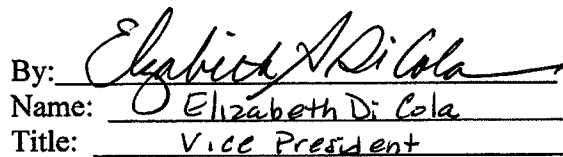 By: Elizabeth A Di Cola
Name: Elizabeth Di Cola
Title: Vice President